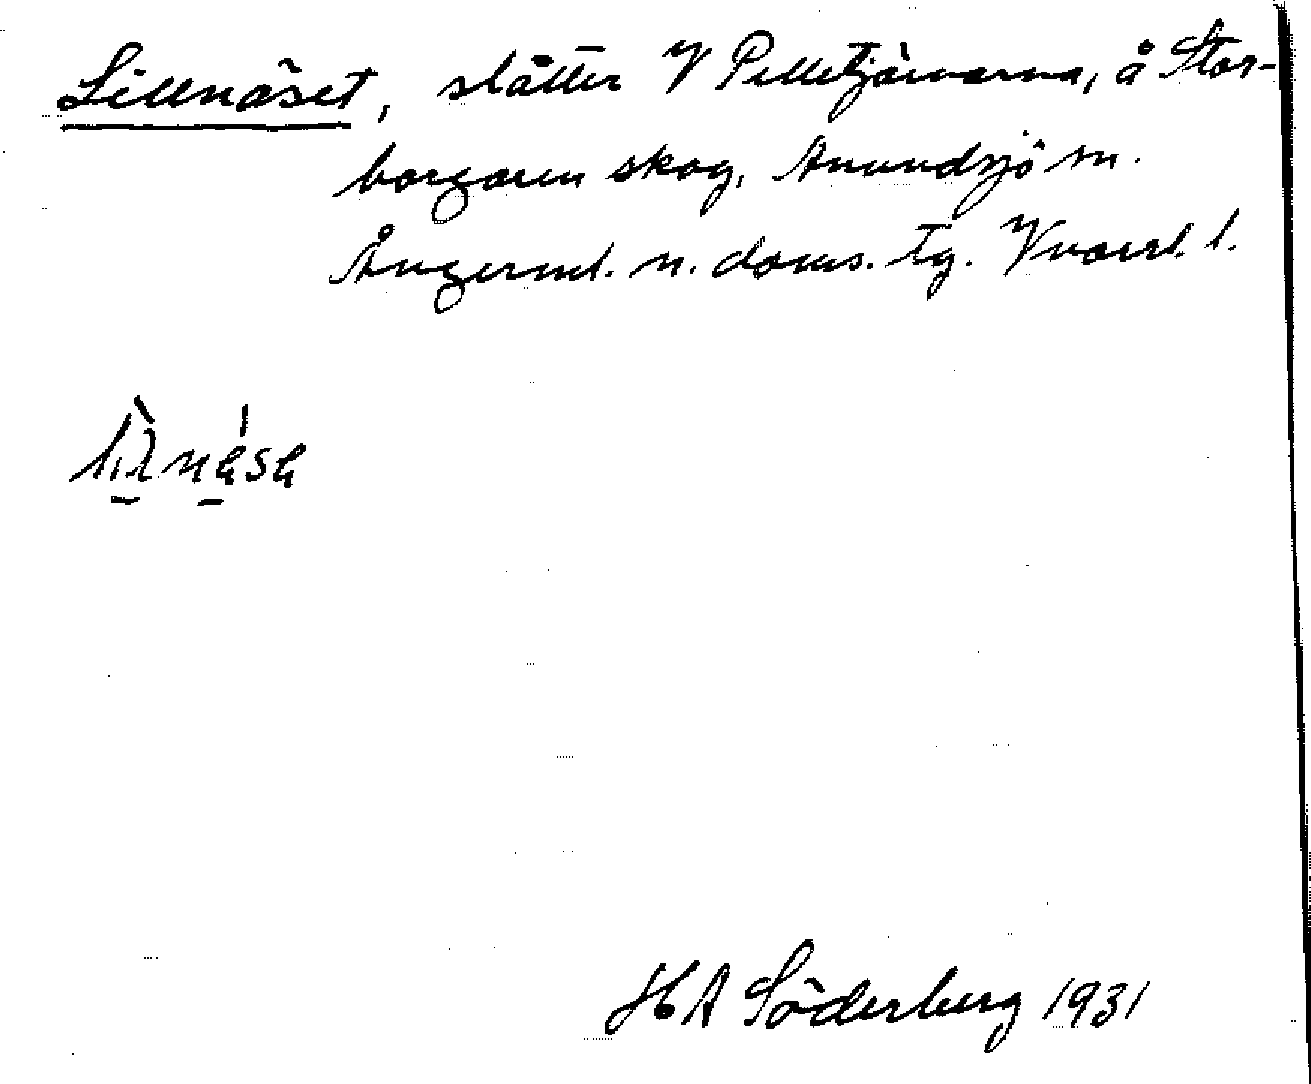 Lillnäset, slåtter V Pelletjärnarna, å Stor-
borgaren skog, Anundsjö sn.
Ångerml. n. doms. tg. Vnorrl. l.
H A Söderberg 1931